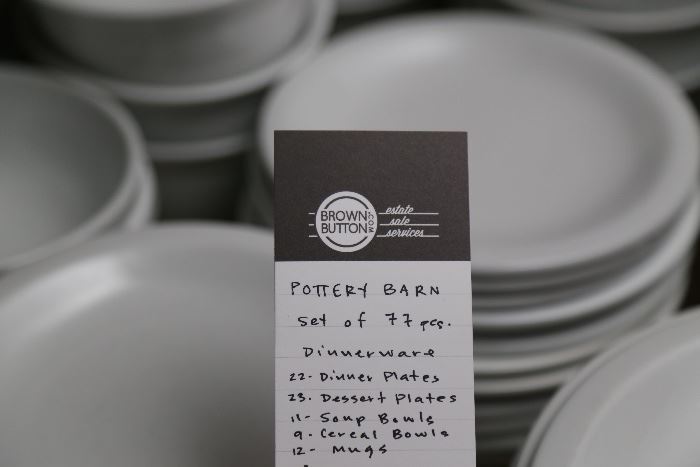 BROWN
BUTTON
.COM
estate
sale
services
POTTERY BARN
Set of 77 pcs.
Dinnerware
22- Dinner Plates
23- Dessert Plates
11- Soup Bowls
9- Cereal Bowls
12- Mugs